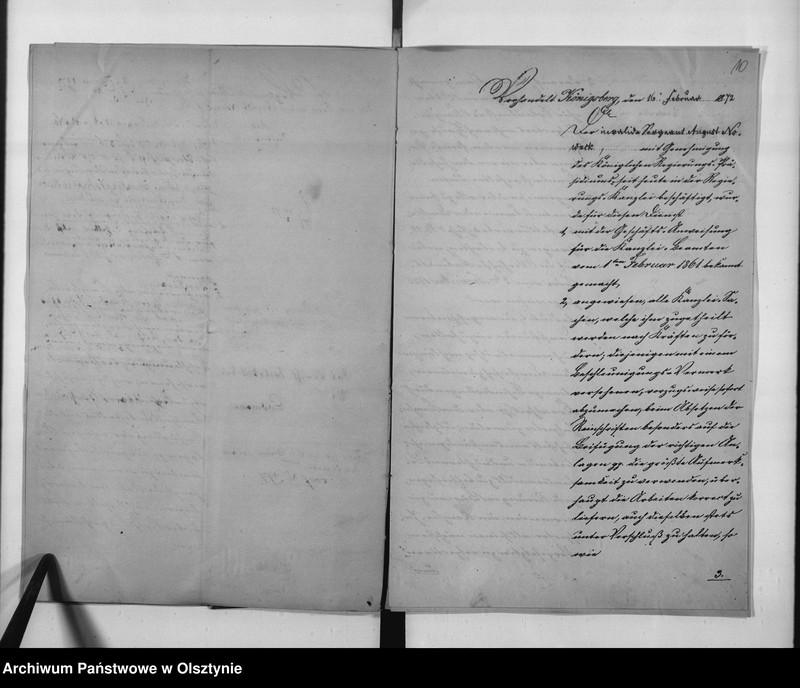 10
Verhandelt Königsberg, den 16. Februar 1872
Der invalide Sergeant August No-
wack, mit Genehmigung
des Königlichen Regierungs-Prä-
sidiums, seit heute in der Regie-
rungs-Kanzlei beschäftigt, wur-
de für diesen Dienst
1, mit der Geschäfts-Anweisung
für die Kanzlei-Beamten
vom 1ten Februar 1861 bekannt
gemacht,
2, angewiesen, alle Kanzlei-Sa-
chen, welche ihm zugetheilt
werden nach Kräften zu för-
dern, diejenigen mit einem
Beschleunigungs-Vermerk
versehenen, vorzugsweise sofort
abzumachen, beim Absetzen der
Reinschriften besonders auf die
Beifügung der richtigen An-
lagen pp. die größte Aufmerk-
samkeit zu verwenden, über-
haupt die Arbeiten korrect zu
liefern, auch dieselben stets
unter Verschluß zu halten, so
wie
3.
Archiwum Państwowe w Olsztynie